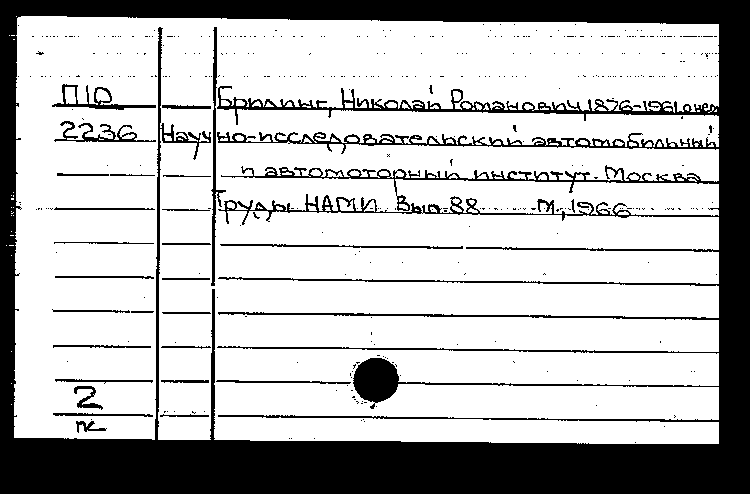 П10 Брилинг, Николай Романович, 1876-1961, о нем
2236 Научно-исследовательский автомобильный
и автомоторный институт. Москва
Труды НАМИ Вып. 88 М., 1966
2
пк